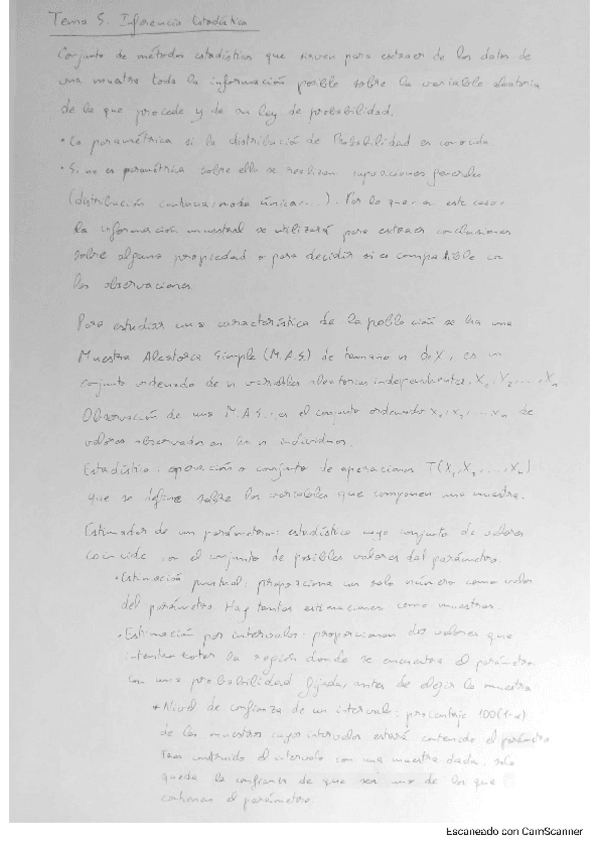 Tema 5. Inferencia Estadística
Conjunto de métodos estadísticos que sirven para extraer de los datos de
una muestra toda la información posible sobre la variable aleatoria
de la que procede y de su ley de probabilidad.
• Es paramétrica si la distribución de Probabilidad es conocida
• Si no es paramétrica sobre ella se realizan suposiciones generales
(distribución continua, moda única...). Por lo que en este caso
la información muestral se utilizará para extraer conclusiones
sobre alguna propiedad o para decidir si es compatible con
las observaciones
Para estudiar una característica de la población se ha una
Muestra Aleatoria Simple (M.A.S.) de tamaño n de X, es un
conjunto ordenado de n variables aleatorias independientes. X₁, X₂, ..., Xₙ
Observación de una M.A.S.: es el conjunto ordenado x₁, x₂, ... xₙ de
valores observados en los n individuos.
Estadístico: operación o conjunto de operaciones T(X₁, X₂, ..., Xₙ)
que se define sobre las variables que componen una muestra.
Estimador de un parámetro: estadístico cuyo conjunto de valores
coincide con el conjunto de posibles valores del parámetro.
• Estimación puntual: proporciona un solo número como valor
del parámetro. Hay tantas estimaciones como muestras.
• Estimación por intervalos: proporcionan dos valores que
intentan acotar la región donde se encuentra el parámetro
con una probabilidad fijada, antes de elegir la muestra
* Nivel de confianza de un intervalo: porcentaje 100(1-α)
de las muestras cuyo intervalo estará contenido el parámetro
construido el intervalo con una muestra dada, solo
queda la confianza de que sea uno de los que
contienen el parámetro.
Escaneado con CamScanner